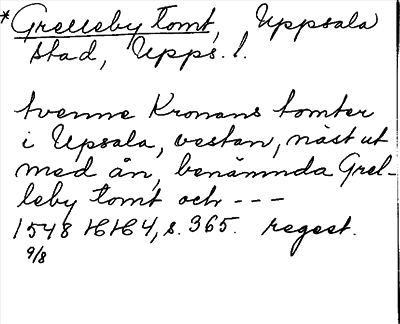 *Grelleby Tomt, Uppsala
stad, Upps. l.
tvenne Kronans tomter
i Upsala, vestan, näst ut
med ån, benämnda Grel-
leby tomt och ---
1548 HH4, s. 365. regest.
9/8